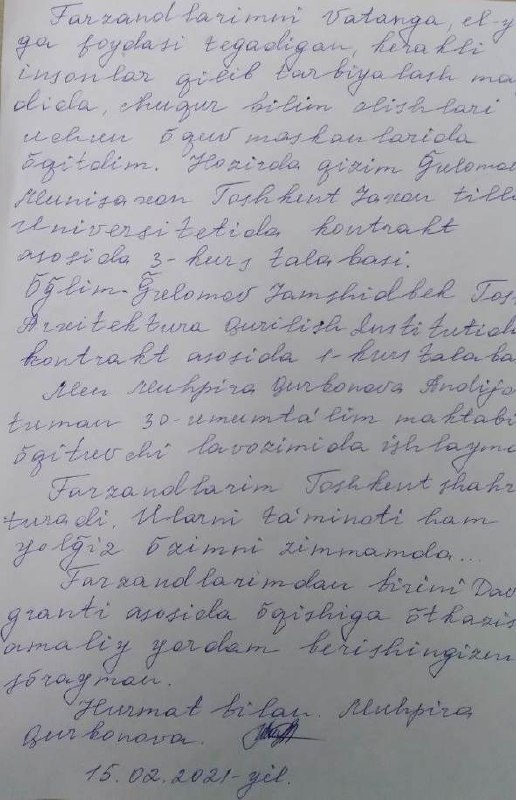 Farzandlarimni Vatanga, el-y
ga foydasi tegadigan, kerakli
insonlar qilib tarbiyalash ma
dida, chuqur bilim olishlari
uchun õquv maskanlarida
õqitdim. Hozirda qizim Ğulomov
Munisaxon Toshkent Jaxon tilla
Universitetida kontrakt
asosida 3-kurs talabasi.
Õğlim-Ğulomov Jamshidbek Tosh
Arxitektura Qurilish Institutida
kontrakt asosida 1-kurs talaba
Men Muhpira Qurbonova Andijo
tuman 30-umumta'lim maktabi
õqituvchi lavozimida ishlayma
Farzandlarim Toshkent shahr
turadi. Ularni ta'minoti ham
yolğiz õzimni zimmamda...
Farzandlarimdan birini Dav
granti asosida õqishiga õtkazis
amaliy yordam berishingizni
sõrayman.
Hurmat bilan. Muhpira
Qurbonova.
15.02.2021-yil.